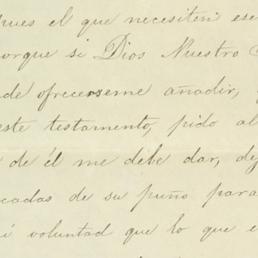 pues el que necesiten ese
porque si Dios Nuestro
de ofrecerseme añadir,
este testamento, pido al
de él me debe dar, dej
cadas de su puño para
mi voluntad que lo que e